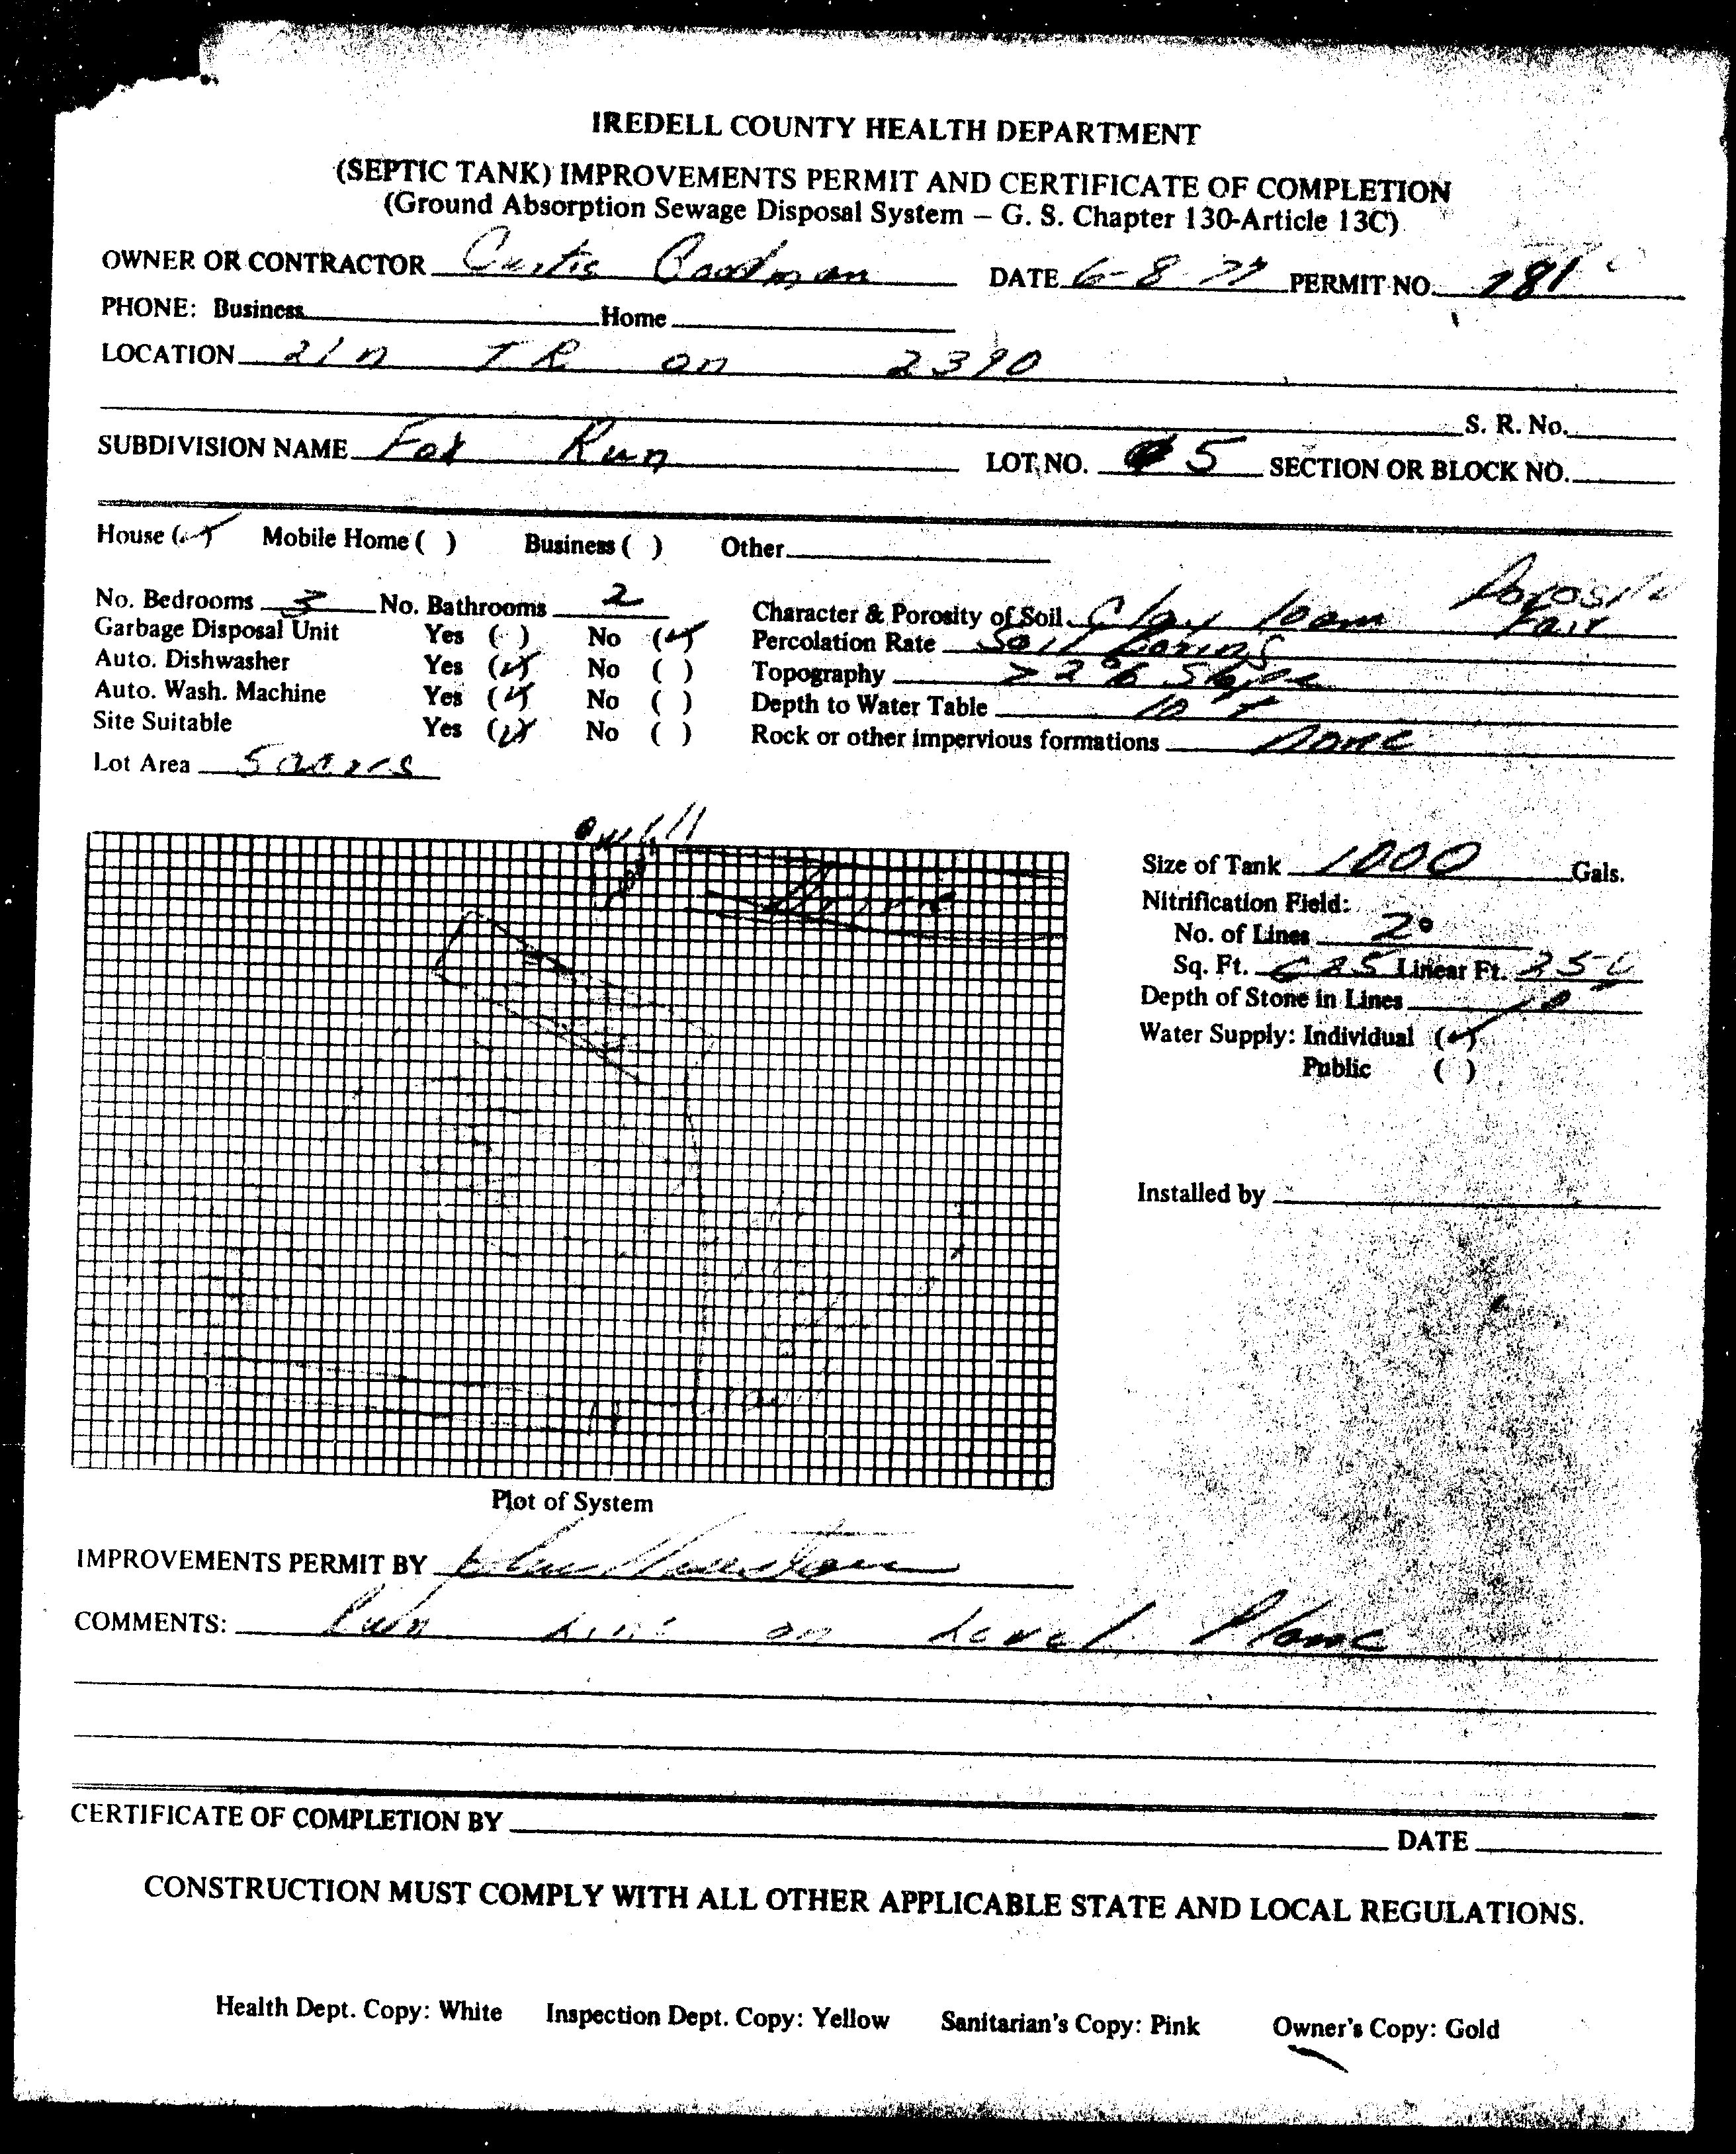 IREDELL COUNTY HEALTH DEPARTMENT
(SEPTIC TANK) IMPROVEMENTS PERMIT AND CERTIFICATE OF COMPLETION
(Ground Absorption Sewage Disposal System – G. S. Chapter 130-Article 13C)
OWNER OR CONTRACTOR Curtis Goodman DATE 6-8-77 PERMIT NO. 781
PHONE: Business Home
LOCATION 21 n TR on 2390
S. R. No.
SUBDIVISION NAME Fox Run LOT NO. 5 SECTION OR BLOCK NO.
House (✓) Mobile Home ( ) Business ( ) Other
Porosity
No. Bedrooms 3 No. Bathrooms 2 Character & Porosity of Soil Clay loam Fair
Garbage Disposal Unit Yes ( ) No (✓) Percolation Rate Soil Boring
Auto. Dishwasher Yes (✓) No ( ) Topography > 2% Slope
Auto. Wash. Machine Yes (✓) No ( ) Depth to Water Table 10'+
Site Suitable Yes (✓) No ( ) Rock or other impervious formations none
Lot Area 5 acres
well
Size of Tank 1000 Gals.
Nitrification Field:
No. of Lines 2
Sq. Ft. Linear Ft.
Depth of Stone in Lines
Water Supply: Individual (✓)
Public ( )
Installed by
Plot of System
IMPROVEMENTS PERMIT BY
COMMENTS: Run line on Level Plane
CERTIFICATE OF COMPLETION BY DATE
CONSTRUCTION MUST COMPLY WITH ALL OTHER APPLICABLE STATE AND LOCAL REGULATIONS.
Health Dept. Copy: White Inspection Dept. Copy: Yellow Sanitarian's Copy: Pink Owner's Copy: Gold